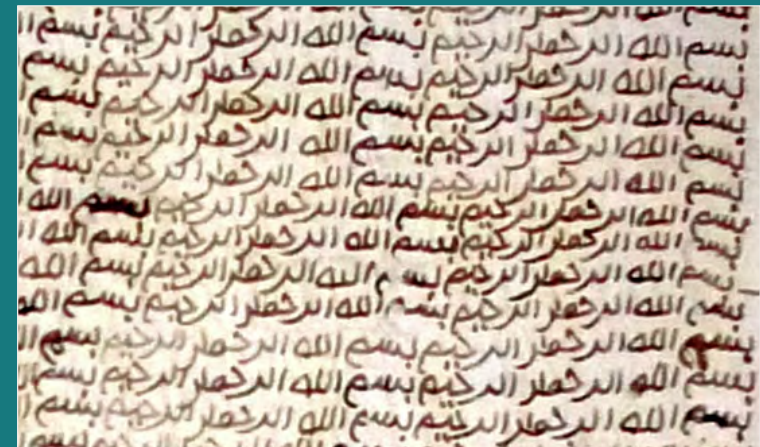 بسم الله الرحمن
بسم الله الرحمن الرحيم بسم الله الرحمن الرحيم بسم ال
بسم الله الرحمن الرحيم بسم الله الرحمن الرحيم بسم
بسم الله الرحمن الرحيم بسم الله الرحمن الرحيم بسم
بسم الله الرحمن الرحيم بسم الله الرحمن الرحيم بسم
بسم الله الرحمن الرحيم بسم الله الرحمن الرحيم بسم
بسم الله الرحمن الرحيم بسم الله الرحمن الرحيم بسم الله
بسم الله الرحمن الرحيم بسم الله الرحمن الرحيم بسم الله
بسم الله الرحمن الرحيم بسم الله الرحمن الرحيم بسم الله
بسم الله الرحمن الرحيم بسم الله الرحمن الرحيم بسم الله
بسم الله الرحمن الرحيم بسم الله الرحمن الرحيم بسم ال
بسم الله الرحمن الرحيم بسم الله الرحمن الرحيم بسم
بسم الله الرحمن الرحيم بسم الله الرحمن الرحيم بسم